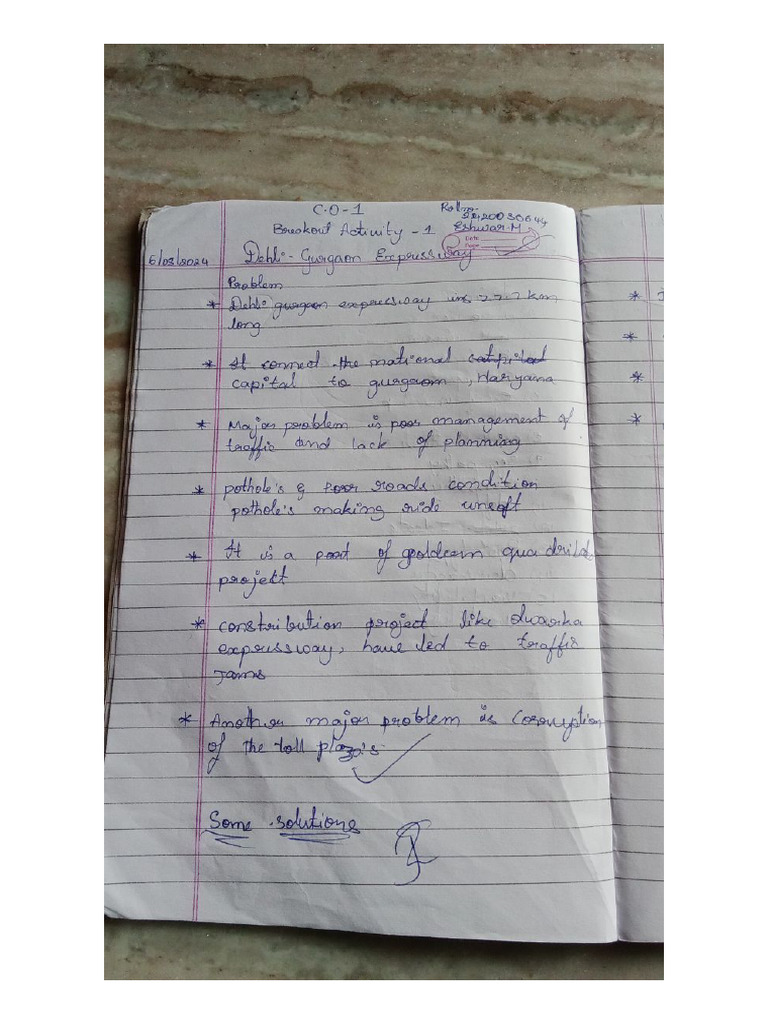 C.O-1
Roll no-
2220030644
Breakout Activity -1
Eshwar.M
Date
Page
6/03/2024
Dehli-Gurgaon Expressway
Problem
* Dehli gurgaon expressway is 27.7 km
long
* It connect the national
capital to gurgaon, Haryana
* Major problem is poor management of
traffic and lack of planning
* pothole's & Poor roads condition
pothole's making ride unsoft
* It is a part of goldern quadrilate
project
* constribution project like dwarka
expressway, have led to traffic
Jams
* Another major problem is Corruption
of the toll plaza's
Some solutions